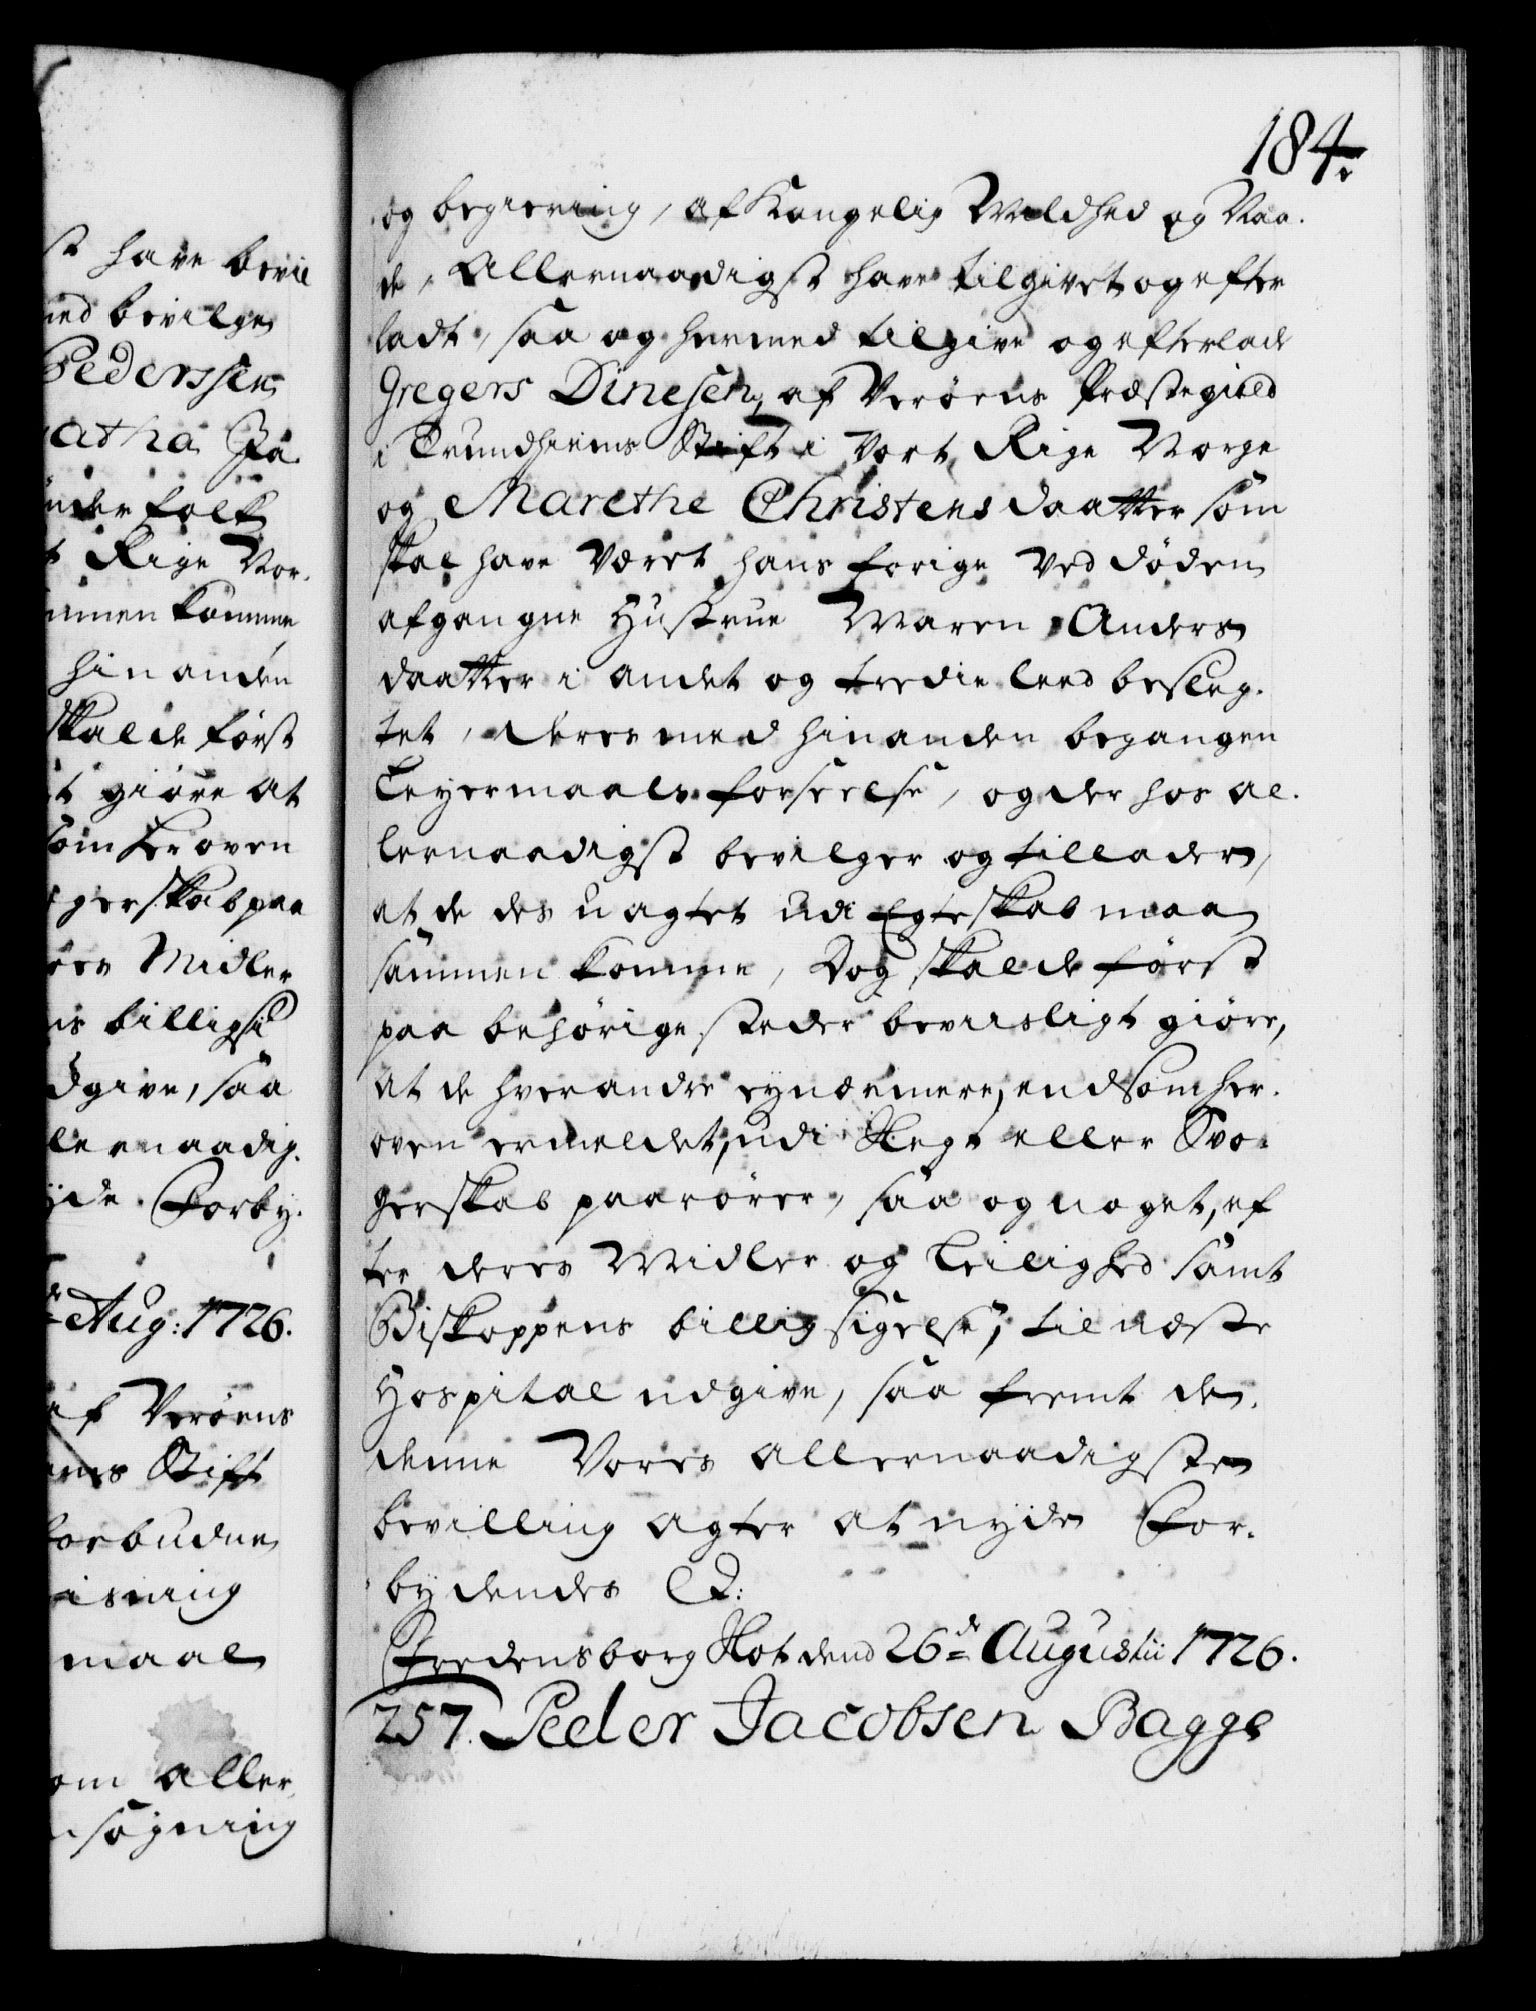 st have bevil
med bevilge
Pederssen
atha Ja
nderfolk
t Rige Nor.
ammen komme
hinanden
skal de først
t giøre at
som her oven
gerskab paa
eres Midler
ns billigst
dgive, saa
lernaadig.
yde. Forby.
Aug: 1726.
af Verøens
ems Stift
forbudne
isning
maal
om aller
nsøgning
184.
og begiering, af Kongelig Mildhed og Naa.
de, Allernaadigst have tilgivet og efter
ladt, saa og hermed tilgive og efterlade
Gregers Dinesen, af Verøens Præstegield
i Trundhiems Stift i Vort Rige Norge
og Marethe Christensdaatter som
skal have været hans forige ved døden
afgangne Hustrue Maren Anders
daatter i andet og tredie leed besleg.
tet, deres med hinanden begangen
Leyermaals forseelse, og der hos al.
lernaadigst bevilger og tillader,
at de des uagtet udi Egteskab maa
sammen komme, Dog skal de først
paa behørige steder beviisligt giøre,
at de hverandre ey nærmere, end som her.
oven ermeldet, udi Slegt eller Svo.
gerskab paarører, saa og noget, ef
ter deres Midler og Leilighed samt
Biskoppens billig sigelse, til næste
Hospital udgive, saa fremt de
denne Vores allernaadigste
bevilling agter at nyde For.
bydendes &:
Fredensborg Slot dend 26de Augustii 1726.
257. Peder Jacobsen Bagge